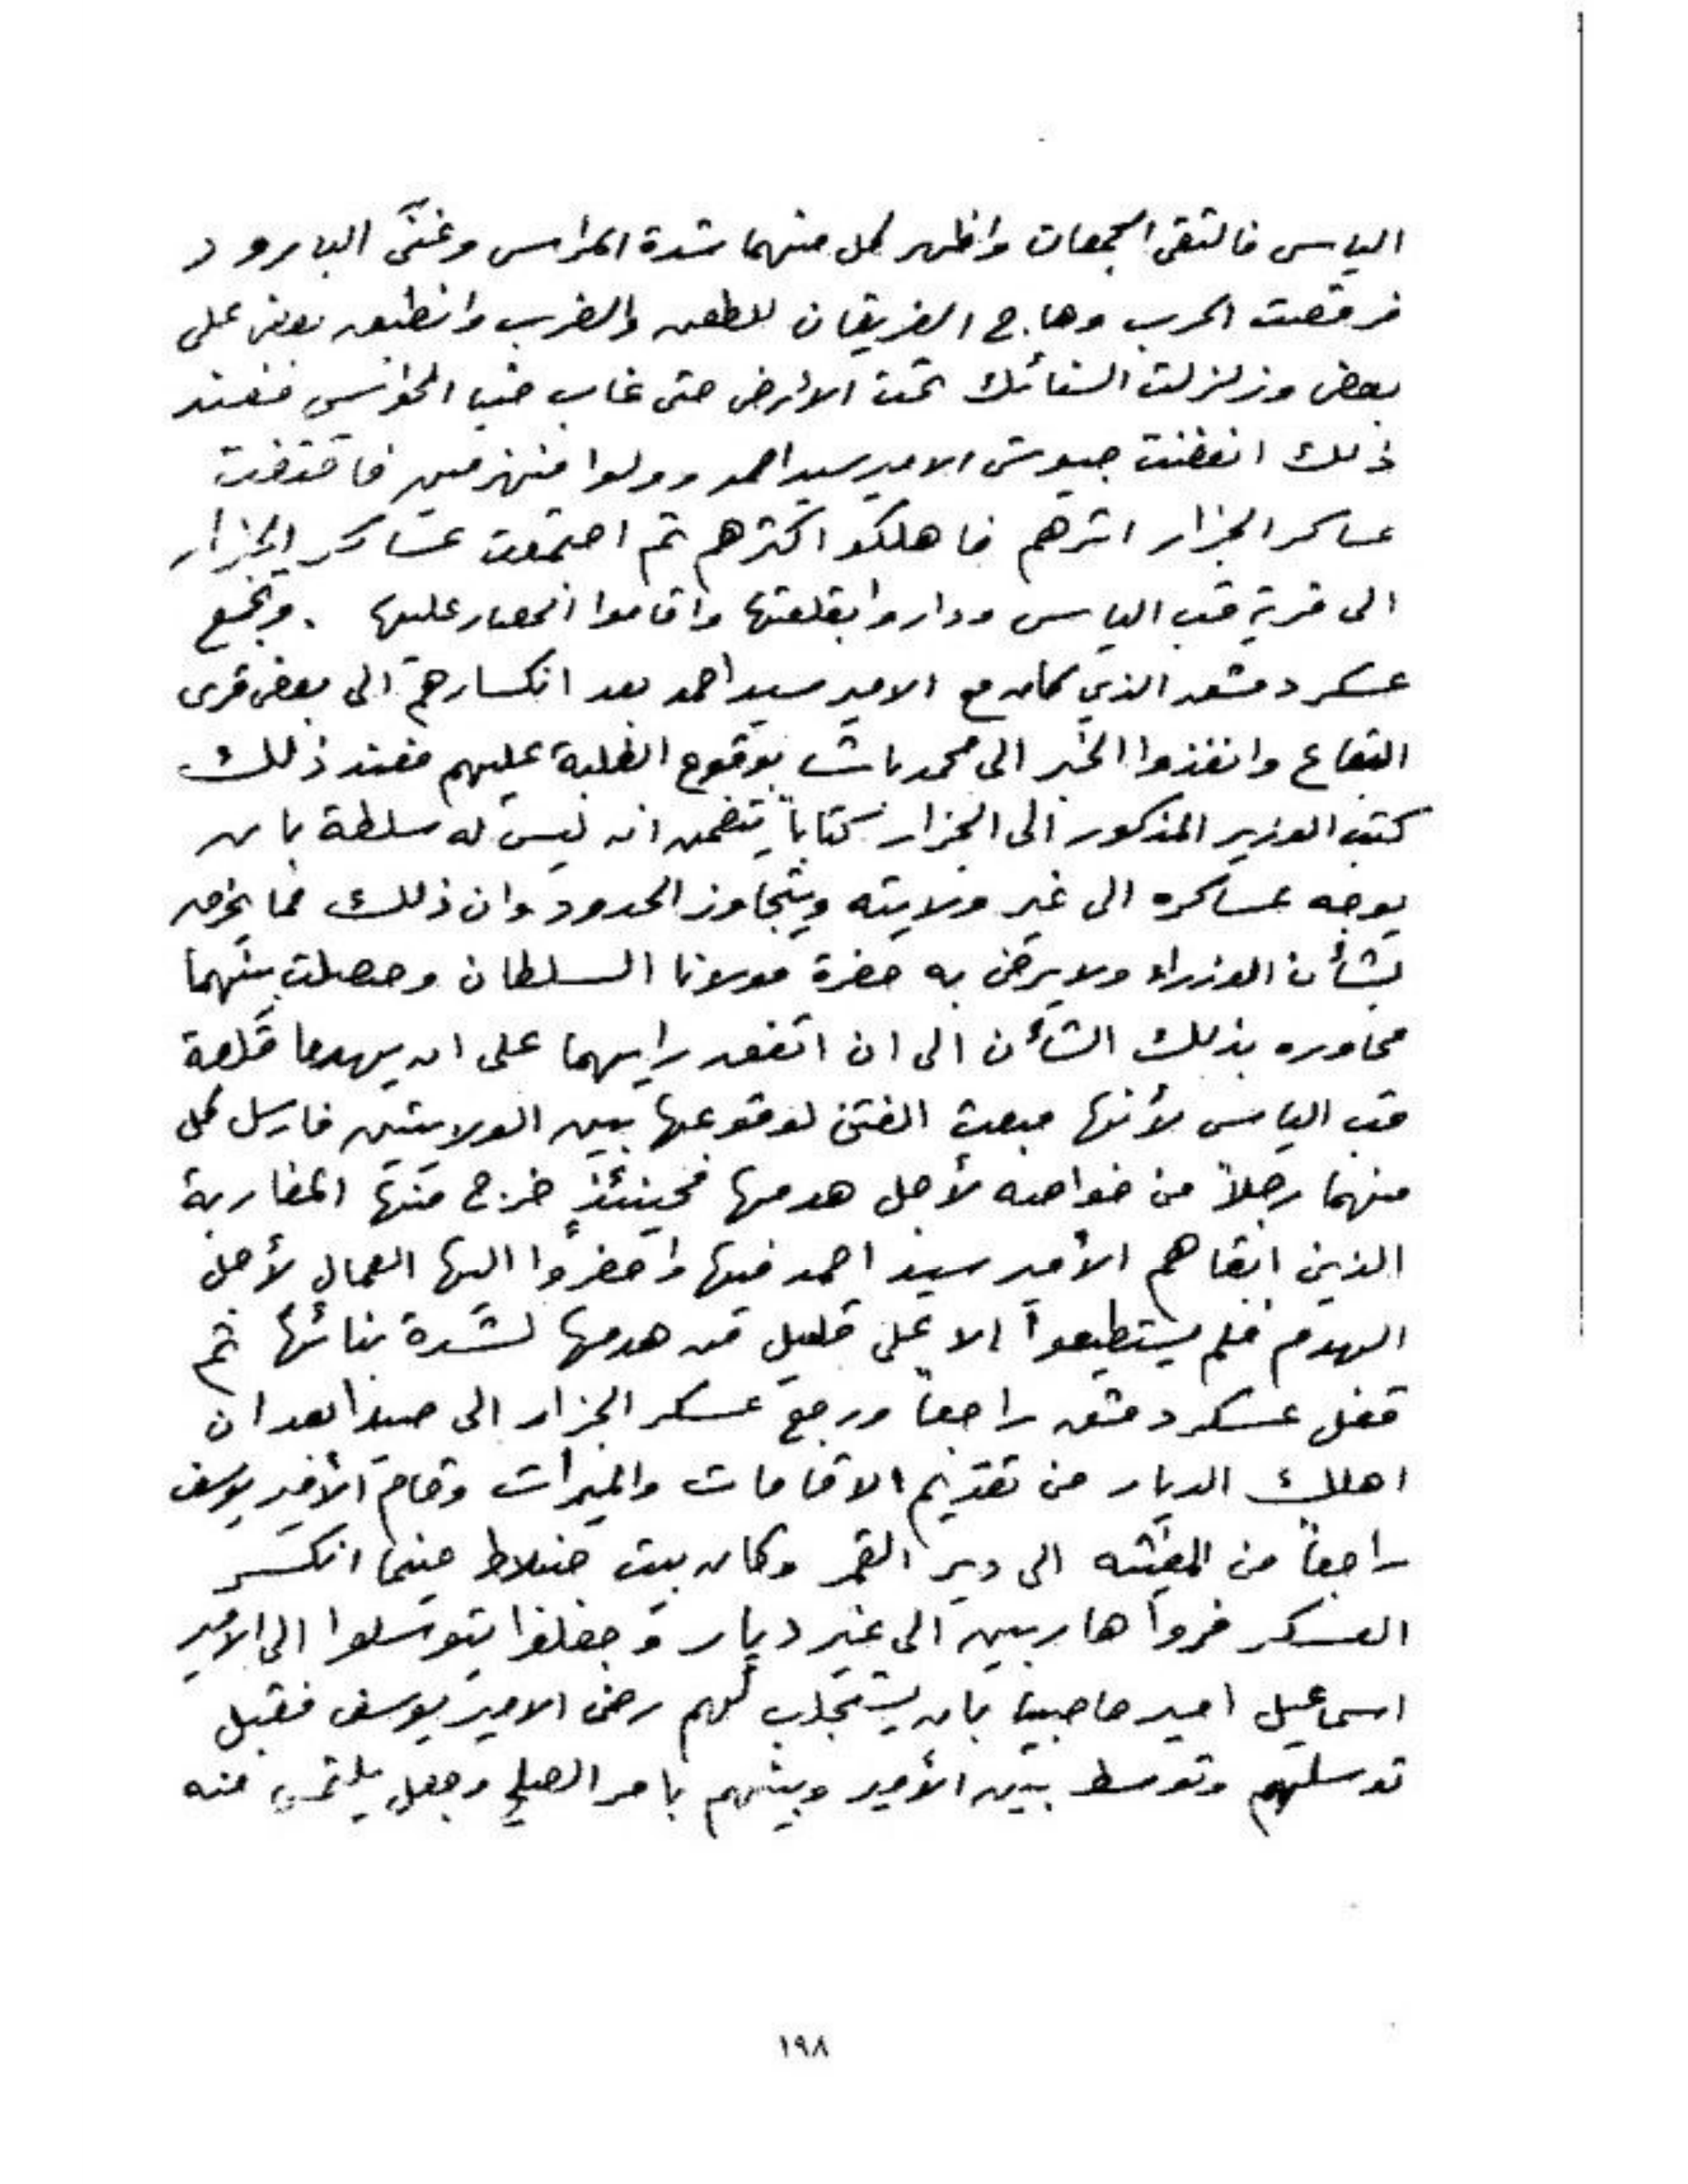 الياس فالتقى الجمعان واظهر كل منهما شدة المراس وغنَّى البارود
فرقصت الحرب وهاج الفريقان للطعن والضرب وانطبق بعض على
بعض وزلزلت السنائك تحت الارض حتى غاب ضيا فعند
ذلك انفضت جيوش الامير سيد احمد وولوا منهزمين فاقتفت
عساكر الجزار اثرهم فاهلكوا اكثرهم ثم اجتمعت عساكر الجزار
الى قرية قب الياس وداروا بقلعتها واقاموا الحصار عليها . وتجمع
عسكر دمشق الذي كان مع الامير سيد احمد بعد انكسارهم الى بعض قرى
البقاع وانفذوا الخبر الى محمد باشا بوقوع الغلبة عليهم فعند ذلك
كتب الوزير المذكور الى الجزار كتاباً يتضمن انه ليس له سلطة بان
يوجه عساكره الى غير ولايته ويتجاوز الحدود وان ذلك مما يخرق
بشأن الوزراء ولا يرضى به حضرة مولانا السلطان وحصلت بينهما
محاوره بذلك الشأن الى ان اتفق رايهما على ان يهدما قلعة
قب الياس لأنها مبعث الفتن لوقوعها بين الولايتين فارسل كل
منهما رجلاً من خواصه لأجل هدمها فحينئذٍ خرج منها المغاربة
الذين ابقاهم الأمير سيد احمد فيها واحضروا اليها العمال لأجل
الهدم فلم يستطيعوا الا على قليل من هدمها لشدة بنائها ثم
قفل عسكر دمشق راجعاً ورجع عسكر الجزار الى صيدا بعد ان
اهلك الديار من تقديم الاقامات والميرات وقام الأمير يوسف
راجعاً من المغيثه الى دير القمر وكان بيت جنبلاط حينما انكسر
العسكر فروا هاربين الى غير ديار وجعلوا يتوسلوا الى الامير
اسماعيل امير حاصبيا بان يستجلب لهم رضى الامير يوسف فقبل
توسلهم وتوسط بين الأمير وبينهم بامر الصلح وجعل يلتمس منه
١٩٨